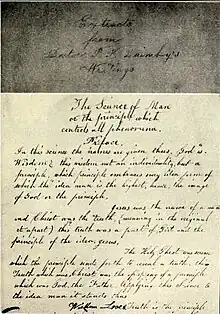 Extracts
from
Doctor P. P. Quimby's
Writings
The Science of Man
or the principle which
controls all phenomena.
Preface.
In this science the names are given thus, God is
Wisdom; this wisdom not an individuality, but a
principle, which principle embraces every idea form of
which the idea man is the highest, hence the image
of God or the principle.
Jesus was the name of a man
and Christ was the truth, (meaning in the original
set apart) this truth was a part of God and the
principle of the idea, Jesus,
The Holy Ghost was even
which the principle sends for to reveal a truth. This
Truth which was Christ was the offspring of a principle
which was God, the Father. Applying this science to
the idea man it stands thus
Wisdom Love & Truth is the principle